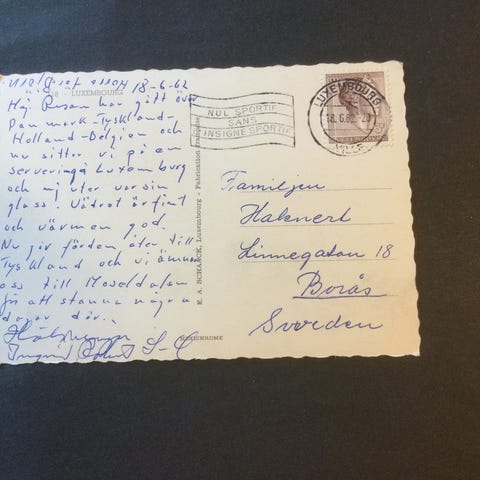 18-6-62
LUXEMBOURG
Hej Resan har gått över
Danmark-Tyskland-
Holland-Belgien och
nu sitter vi på en
servering i Luxemburg
och njuter varsin
glass! Vädret är fint
och värmen god.
Nu går färden åter till
Tyskland och vi ämnar
oss till Moseldalen
för att stanna några
dagar där.
Hälsningar
Ingrid
NUL SPORTIF
SANS
L'INSIGNE SPORTIF
LUXEMBOURG
18.6.62-20
VILLE
E. A. SCHAACK, Luxembourg - Fabrication française
MEXICHROME
Familjen
Haknert
Linnegatan 18
Borås
Sweden